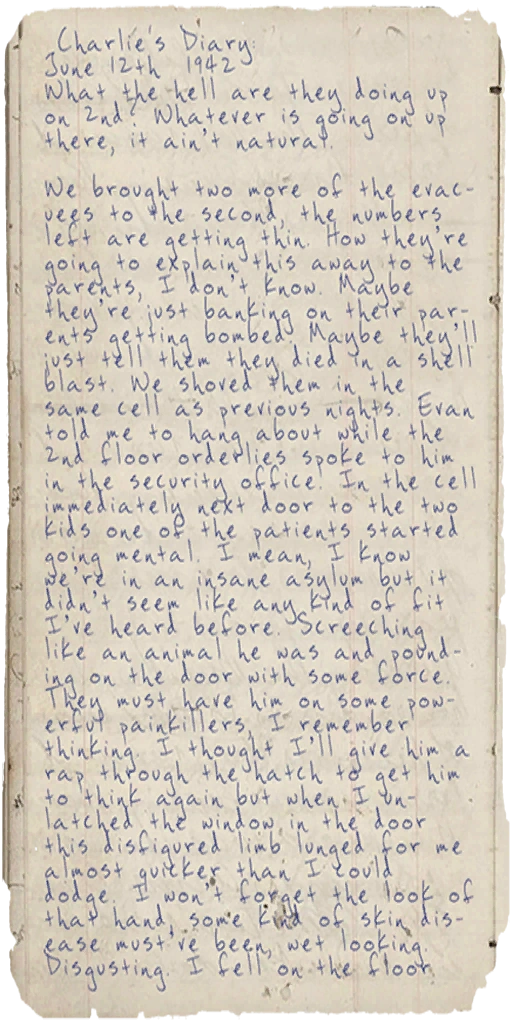 Charlie's Diary
June 12th 1942
What the hell are they doing up
on 2nd? Whatever is going on up
there, it ain't natural.
We brought two more of the evac-
uees to the second, the numbers
left are getting thin. How they're
going to explain this away to the
parents, I don't know. Maybe
they're just banking on their par-
ents getting bombed. Maybe they'll
just tell them they died in a shell
blast. We shoved them in the
same cell as previous nights. Evan
told me to hang about while the
2nd floor orderlies spoke to him
in the security office. In the cell
immediately next door to the two
kids one of the patients started
going mental. I mean, I know
we're in an insane asylum but it
didn't seem like any kind of fit
I've heard before. Screeching
like an animal he was and pound-
ing on the door with some force.
They must have him on some pow-
erful painkillers, I remember
thinking. I thought I'll give him a
rap through the hatch to get him
to think again but when I un-
latched the window in the door
this disfigured limb lunged for me
almost quicker than I could
dodge. I won't forget the look of
that hand, some kind of skin dis-
ease must've been, wet looking.
Disgusting. I fell on the floor,